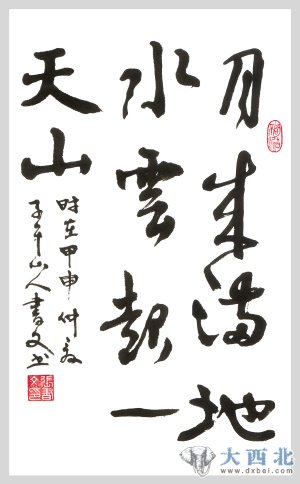 月来满地
水雲起一
天山
时在甲申仲夏
子午山人書文书
大西北
www.dxbei.com